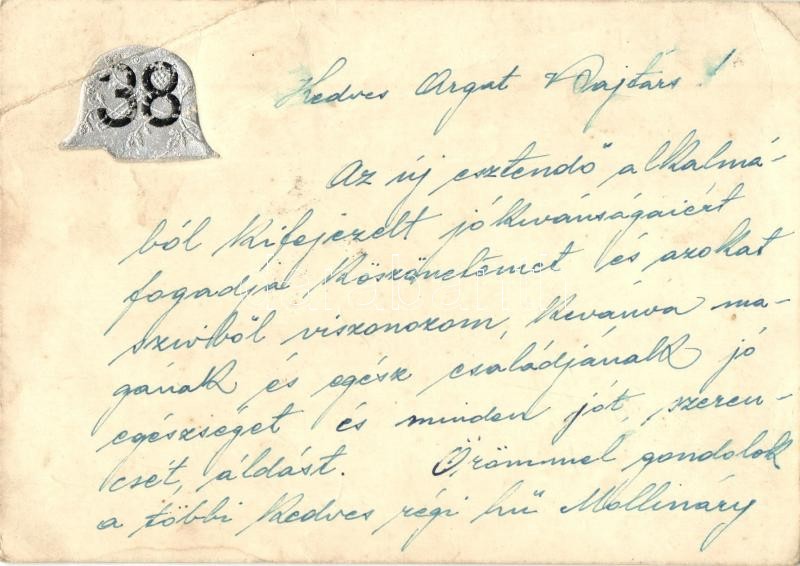 38
Kedves Argat Bajtárs!
Az új esztendő alkalmá-
ból kifejezett jókivánságaiért
fogadja köszönetemet és azokat
szivből viszonozom, kivánva ma-
gának és egész családjának jó
egészséget és minden jót, szeren-
csét, áldást. Örömmel gondolok
a többi kedves régi hű Mollináry